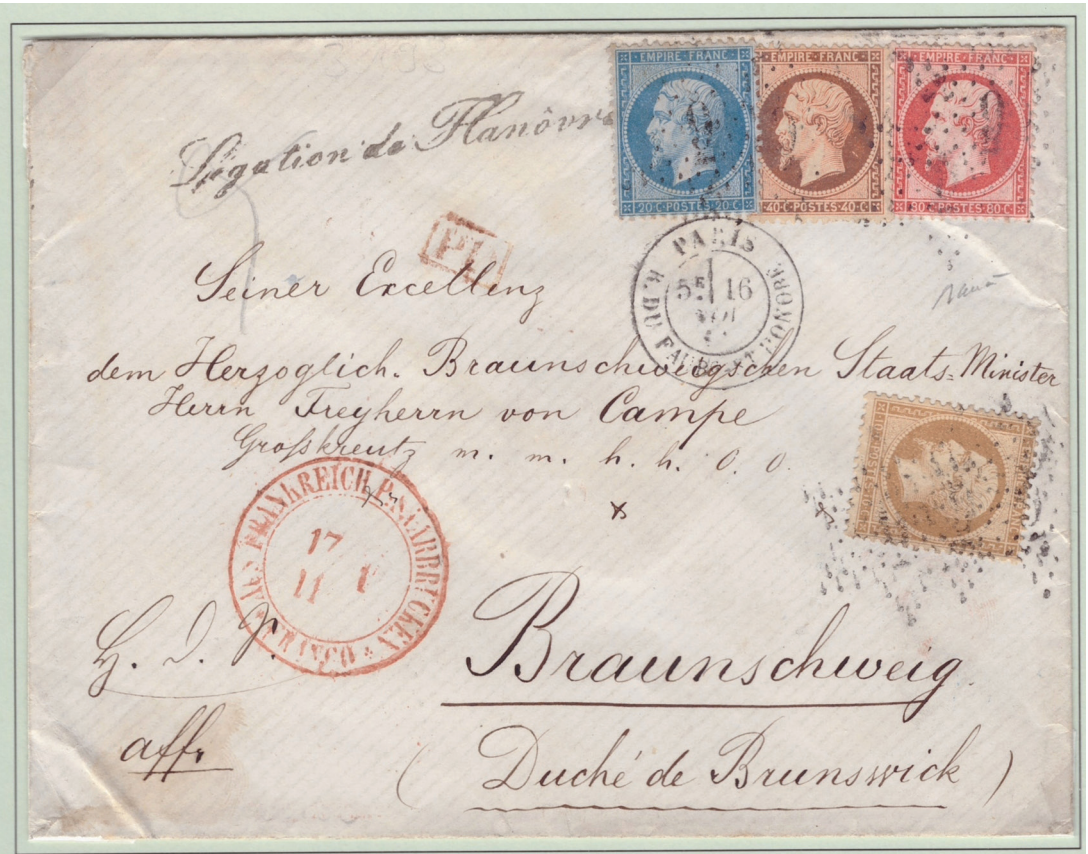 Légation de Hanôvre
EMPIRE FRANC
20·C·POSTES·20·C
EMPIRE FRANC
40·C·POSTES·40·C
EMPIRE FRANC
80·POSTES·80·C
PD
PARIS
5E 16
R. DU FAUBG ST HONORÉ
Seiner Excellenz
dem Herzoglich. Braunschweigschen Staats-Minister
Herrn Freyherrn von Campe
Großkreutz m. m. h. h. O. O.
10·C·POSTES·10·C
EMPIRE FRANC
AUS FRANKREICH P. SAARBRÜCKEN
17
11 1
FRANCO
H. d. J.
Braunschweig
affr
(Duché de Brunswick)